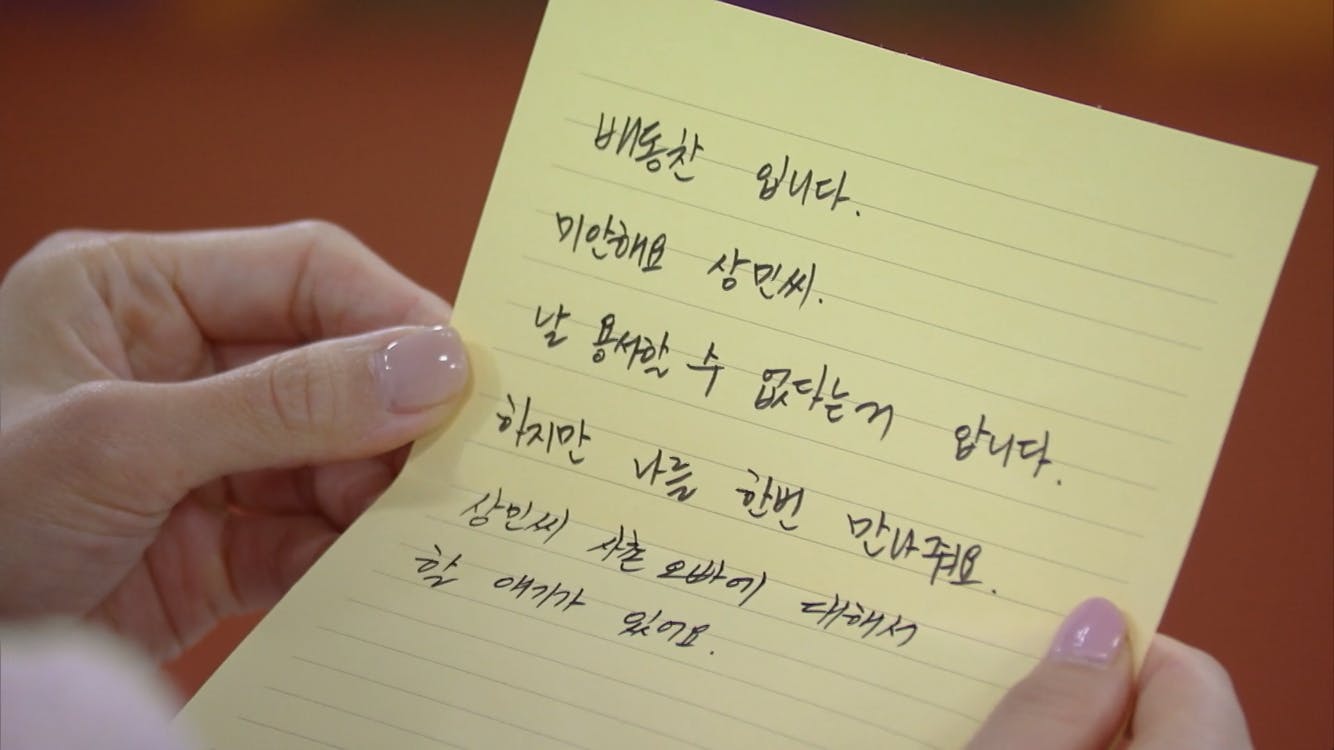 배동찬 입니다.
미안해요 상민씨.
날 용서할 수 없다는거 압니다.
하지만 나를 한번 만나줘요.
상민씨 사촌오빠에 대해서
할 얘기가 있어요.